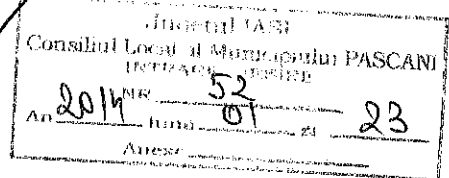 Judetul IASI
Consiliul Local al Municipiului PASCANI
NR. 52
An 2014 luna 01 zi 23
Anexe